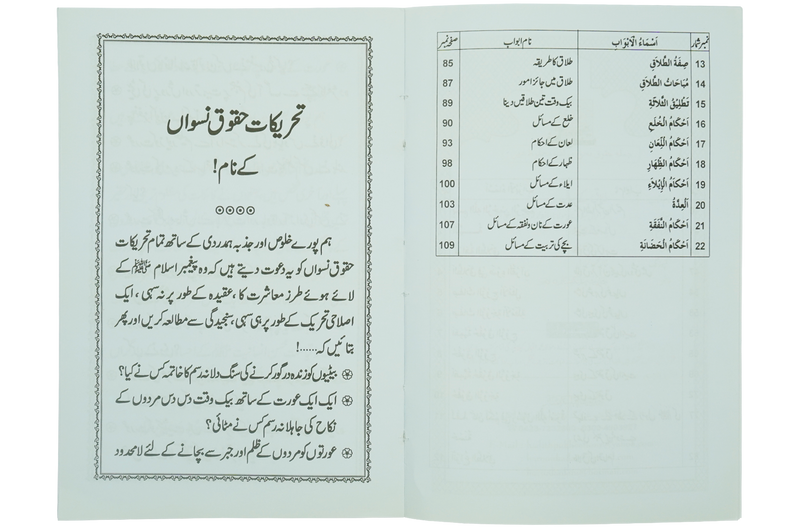 نمبر شمار اَسْمَاءُ الْاَبْوَاب نام ابواب صفحہ نمبر
13 صِفَةُ الطَّلَاقِ طلاق کا طریقہ 85
14 مُبَاحَاتُ الطَّلَاقِ طلاق میں جائز امور 87
15 تَطْلِيْقُ الثَّلَاثَةِ بیک وقت تین طلاقیں دینا 89
16 اَحْكَامُ الْخُلْعِ خلع کے مسائل 90
17 اَحْكَامُ اللِّعَانِ لعان کے احکام 93
18 اَحْكَامُ الظِّهَارِ ظہار کے احکام 98
19 اَحْكَامُ الْاِيْلَاءِ ایلاء کے مسائل 100
20 اَلْعِدَّةُ عدت کے مسائل 103
21 اَحْكَامُ النَّفَقَةِ عورت کے نان و نفقہ کے مسائل 107
22 اَحْكَامُ الْحَضَانَةِ بچے کی تربیت کے مسائل 109
تحریکات حقوق نسواں
کے نام!
ہم پورے خلوص اور جذبہ ہمدردی کے ساتھ تمام تحریکات
حقوق نسواں کو یہ دعوت دیتے ہیں کہ وہ پیغمبر اسلام ﷺ کے
لائے ہوئے طرز معاشرت کا، عقیدہ کے طور پر نہ سہی، ایک
اصلاحی تحریک کے طور پر ہی سہی، سنجیدگی سے مطالعہ کریں اور پھر
بتائیں کہ......!
بیٹیوں کو زندہ درگور کرنے کی سنگ دلانہ رسم کا خاتمہ کس نے کیا؟
ایک ایک عورت کے ساتھ بیک وقت دس دس مردوں کے
نکاح کی جاہلانہ رسم کس نے مٹائی؟
عورتوں کو مردوں کے ظلم اور جبر سے بچانے کے لئے لامحدود